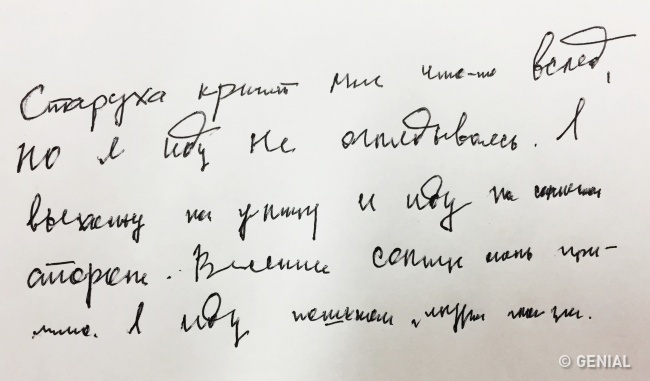 Старуха кричит мне что-то вслед,
но я иду не оглядываясь. Я
выхожу на улицу и иду по солнечной
стороне. Весеннее солнце очень при-
ятно. Я иду пешком, щурю глаза.
© GENIAL